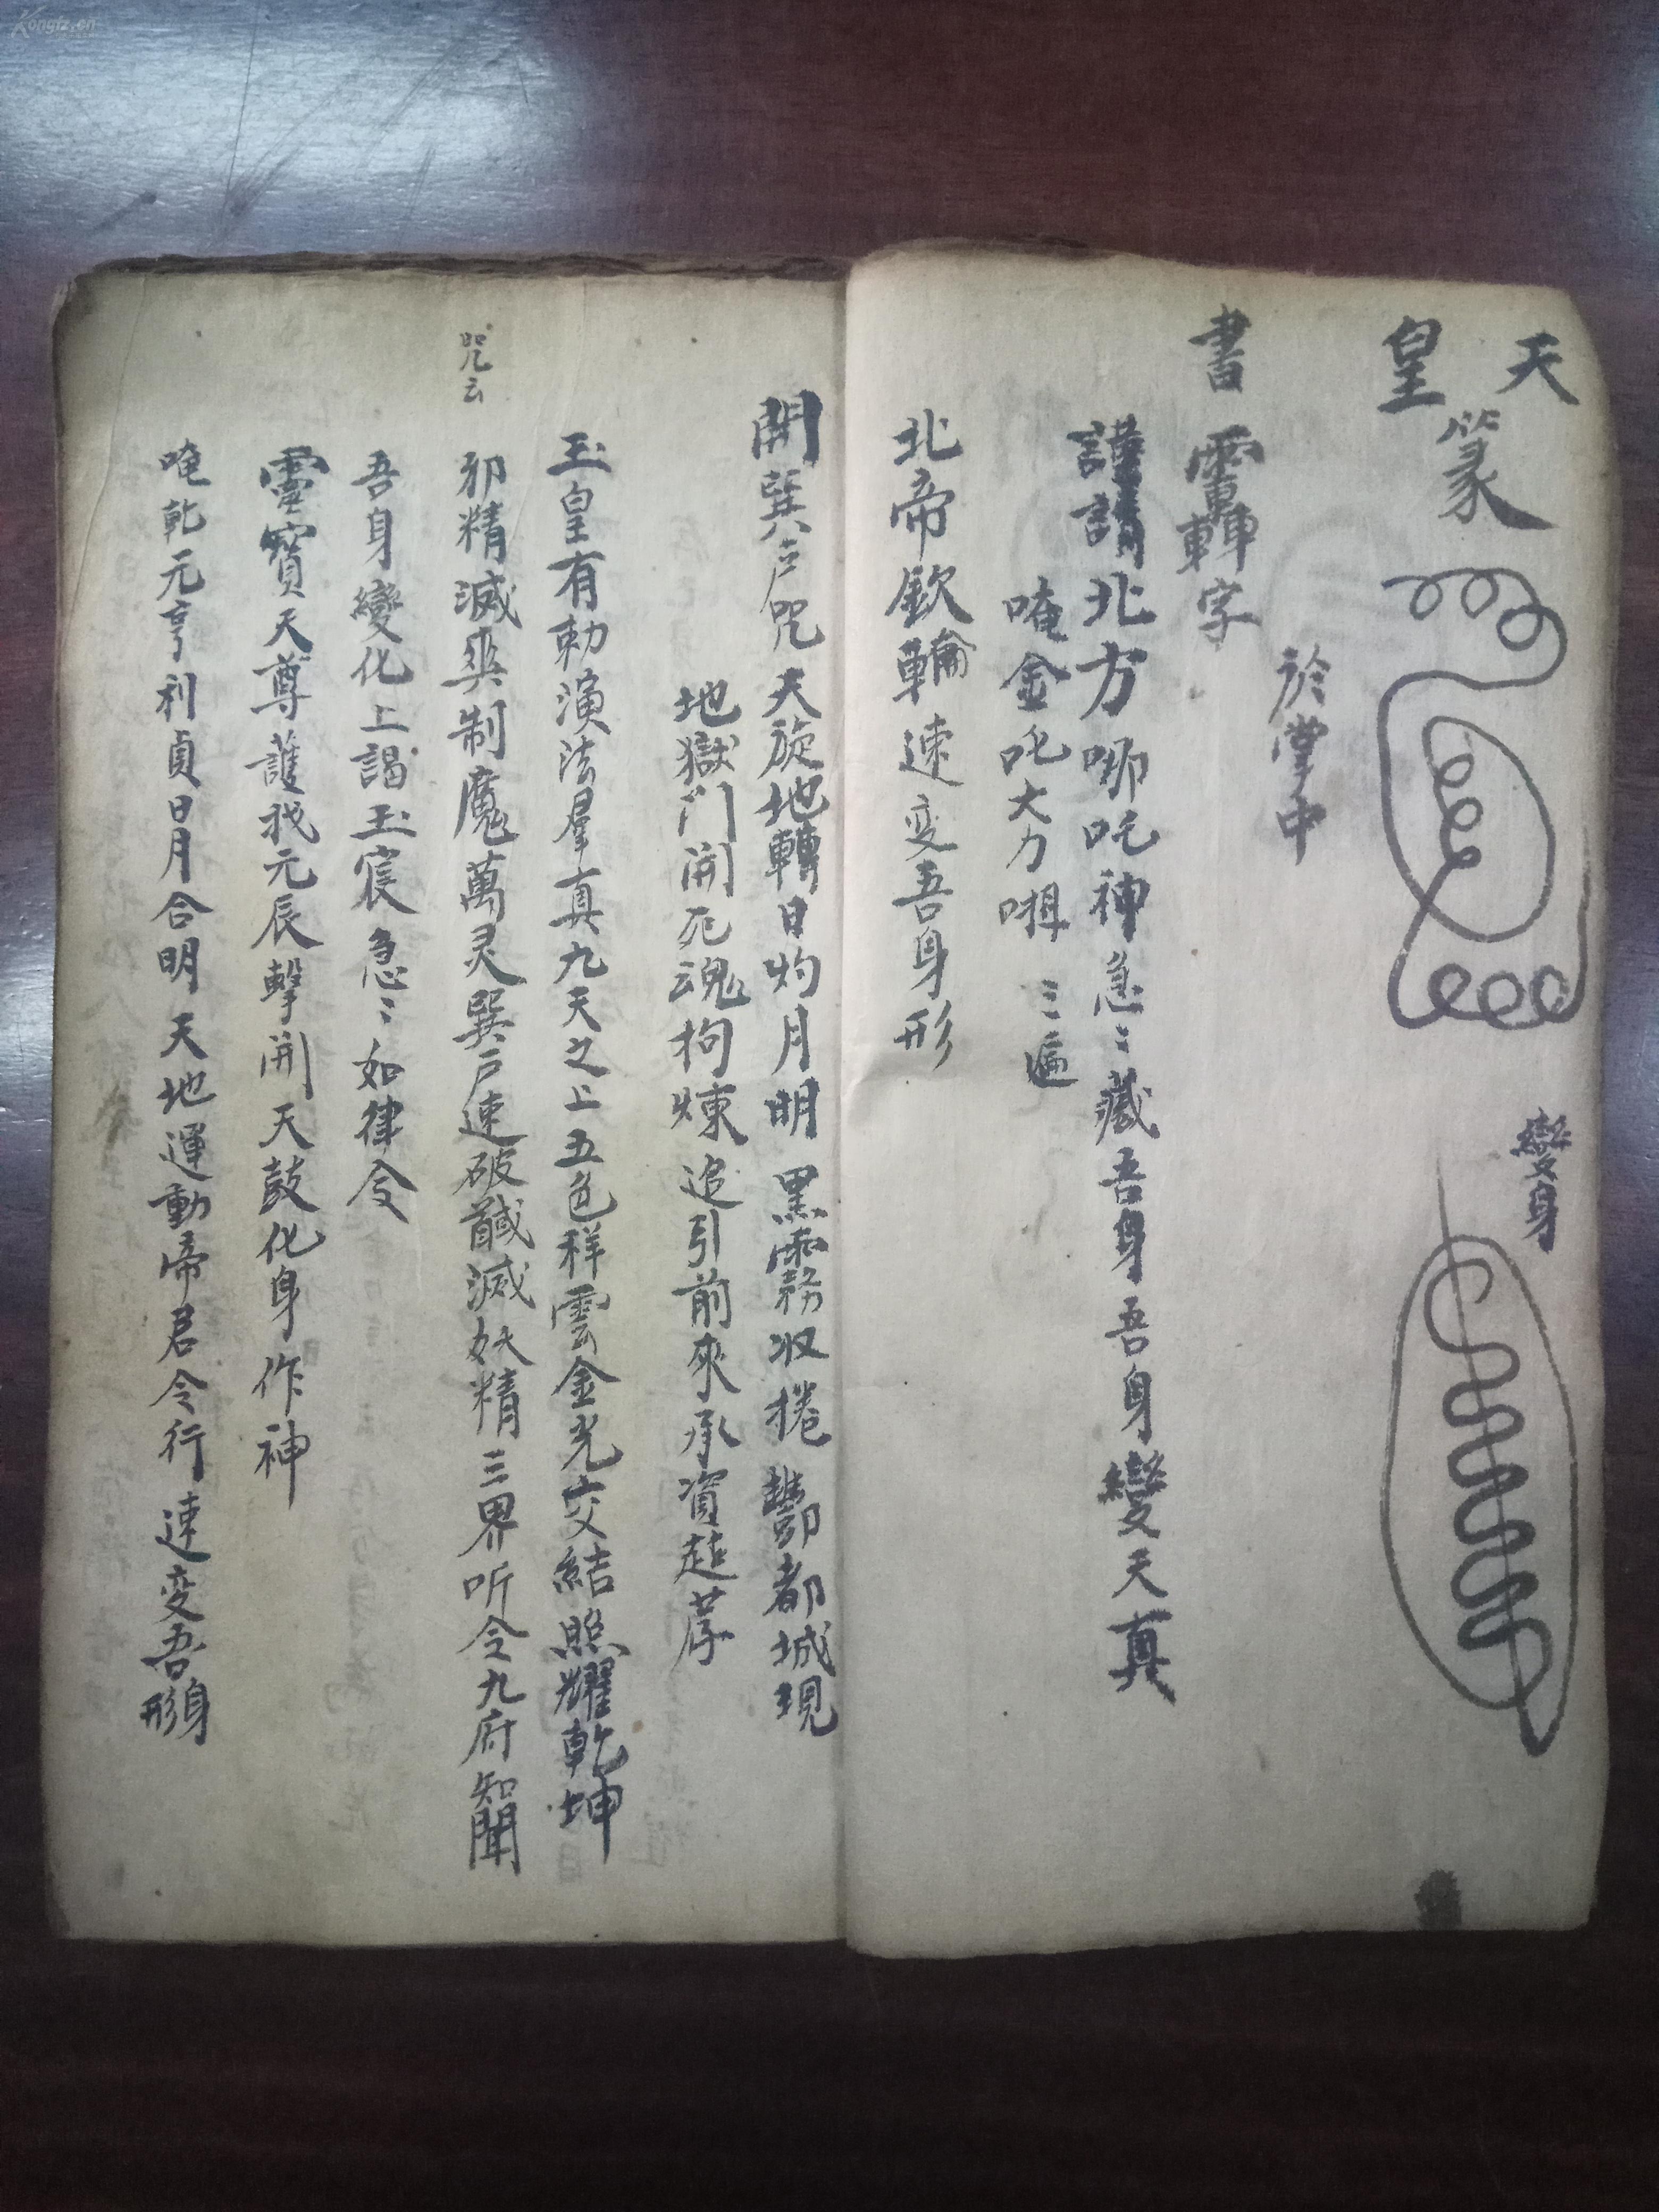 Kongfz.cn
天
皇
篆
變身
於掌中
書
字
謹請北方哪吒神急〻藏吾身吾身變天真
唵金吒大力 〻遍
北帝欽輪速变吾身形
開巽户咒天旋地轉日灼月明黑霧收捲酆都城現
地獄門開死魂拘煉追引前來承資超荐
玉皇有勅演法羣真九天之上五色祥雲金光交結照耀乾坤
咒云
邪精滅 制魔萬灵巽户速破 滅妖精三界听令九府知聞
吾身變化上謁玉宸急〻如律令
靈寶天尊護我元辰擊開天鼓化身作神
唵乾元亨利貞日月合明天地運動帝君令行速变吾身形